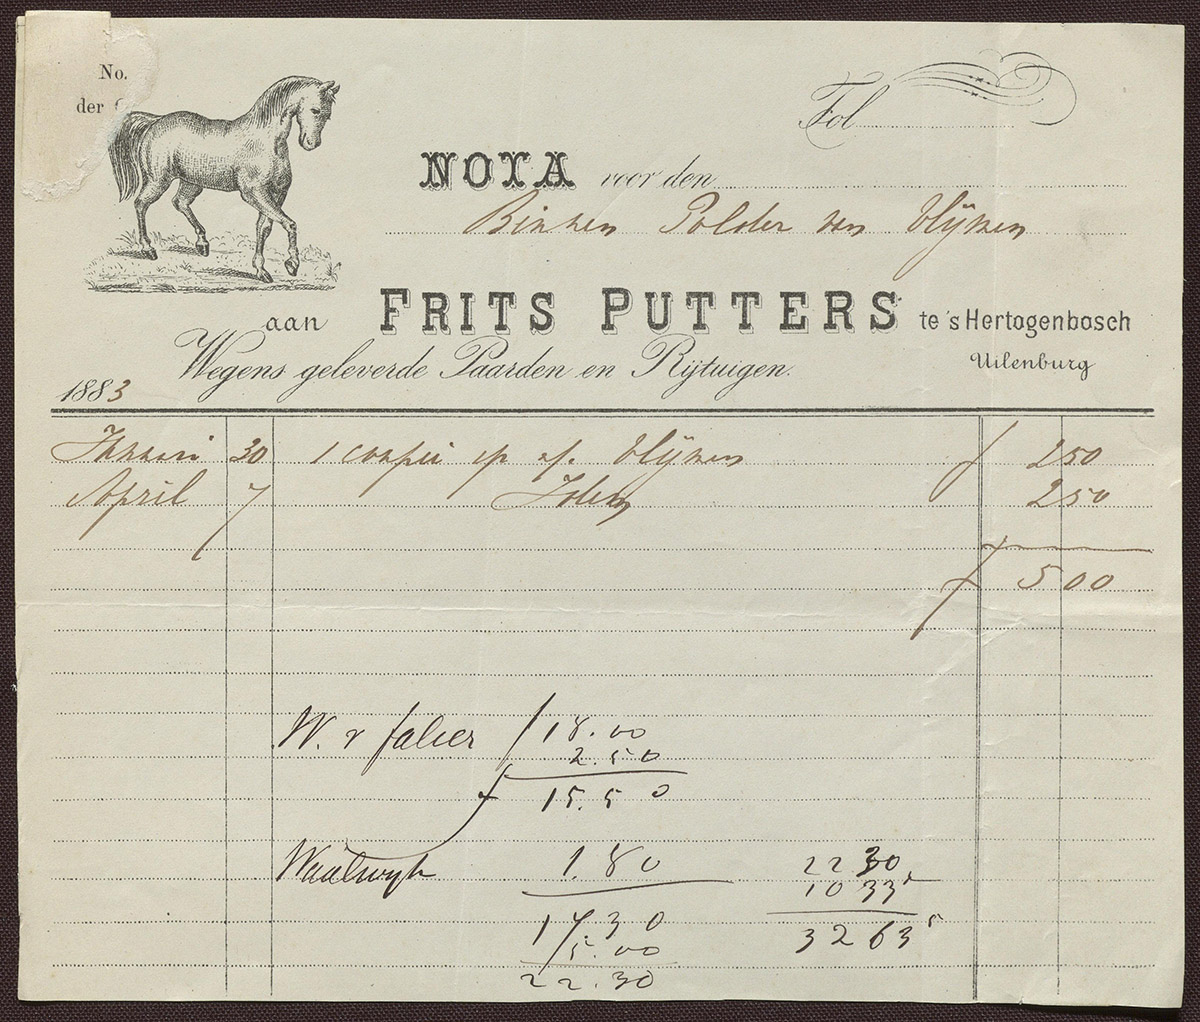 No.
der
Fol
NOTA voor den
Binnen Polder van Vlijmen
aan FRITS PUTTERS te 's Hertogenbosch
Uilenburg
Wegens geleverde Paarden en Rijtuigen.
1883
Januari 30 1 coupé op en af Vlijmen f 2 50
April 7 Idem 2 50
f 5 00
W. v falier f 18.00
2.50
f 15.50
Waalwyk 1.80
17 30
5.00
22.30
22 30
10 33⁵
32 63⁵